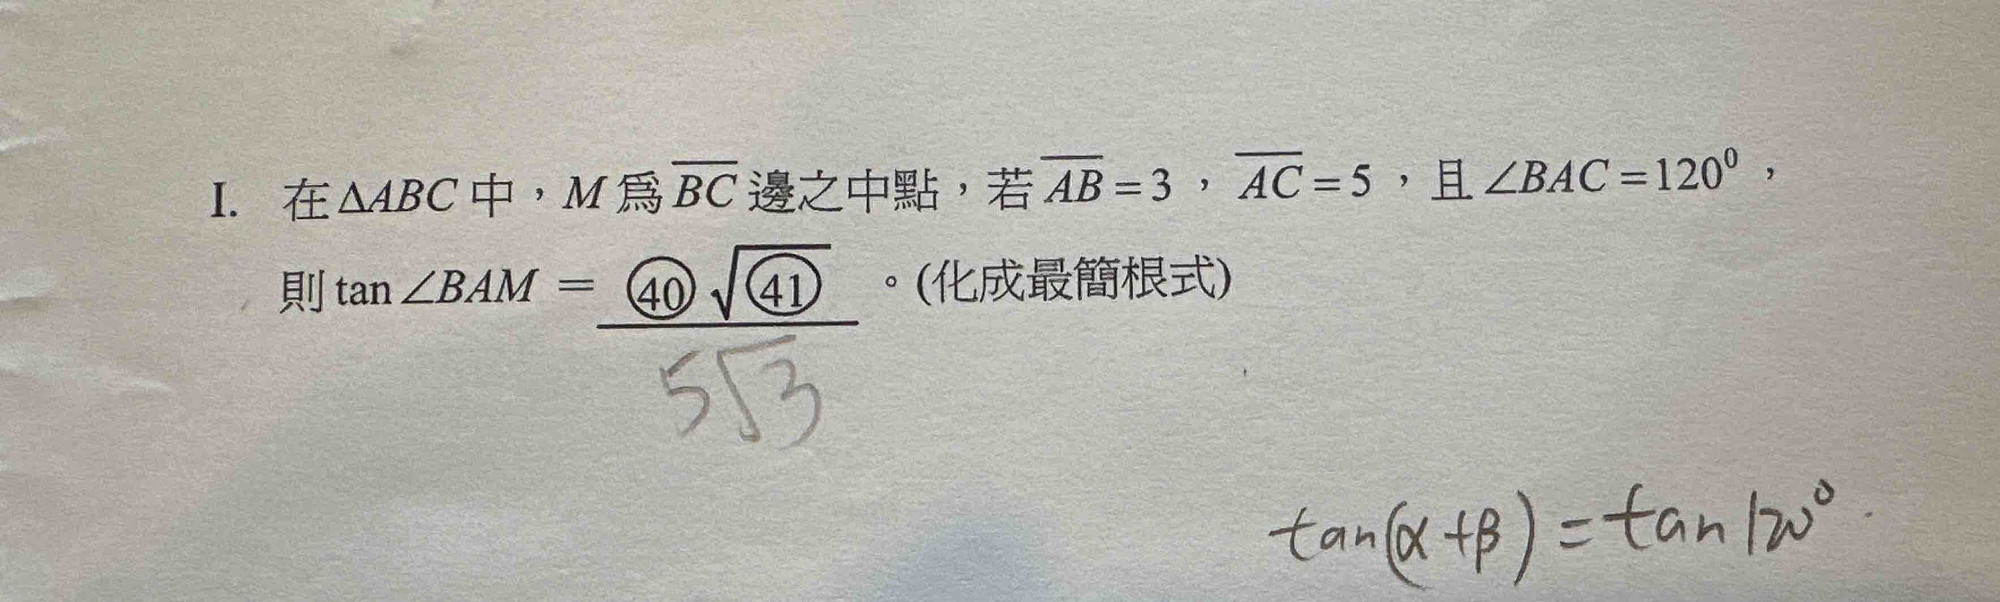 I. 在ΔABC中，M為BC邊之中點，若AB=3，AC=5，且∠BAC=120⁰，
則tan∠BAM = ㊵√㊶。(化成最簡根式)
5√3
tan(α+β)=tan120°